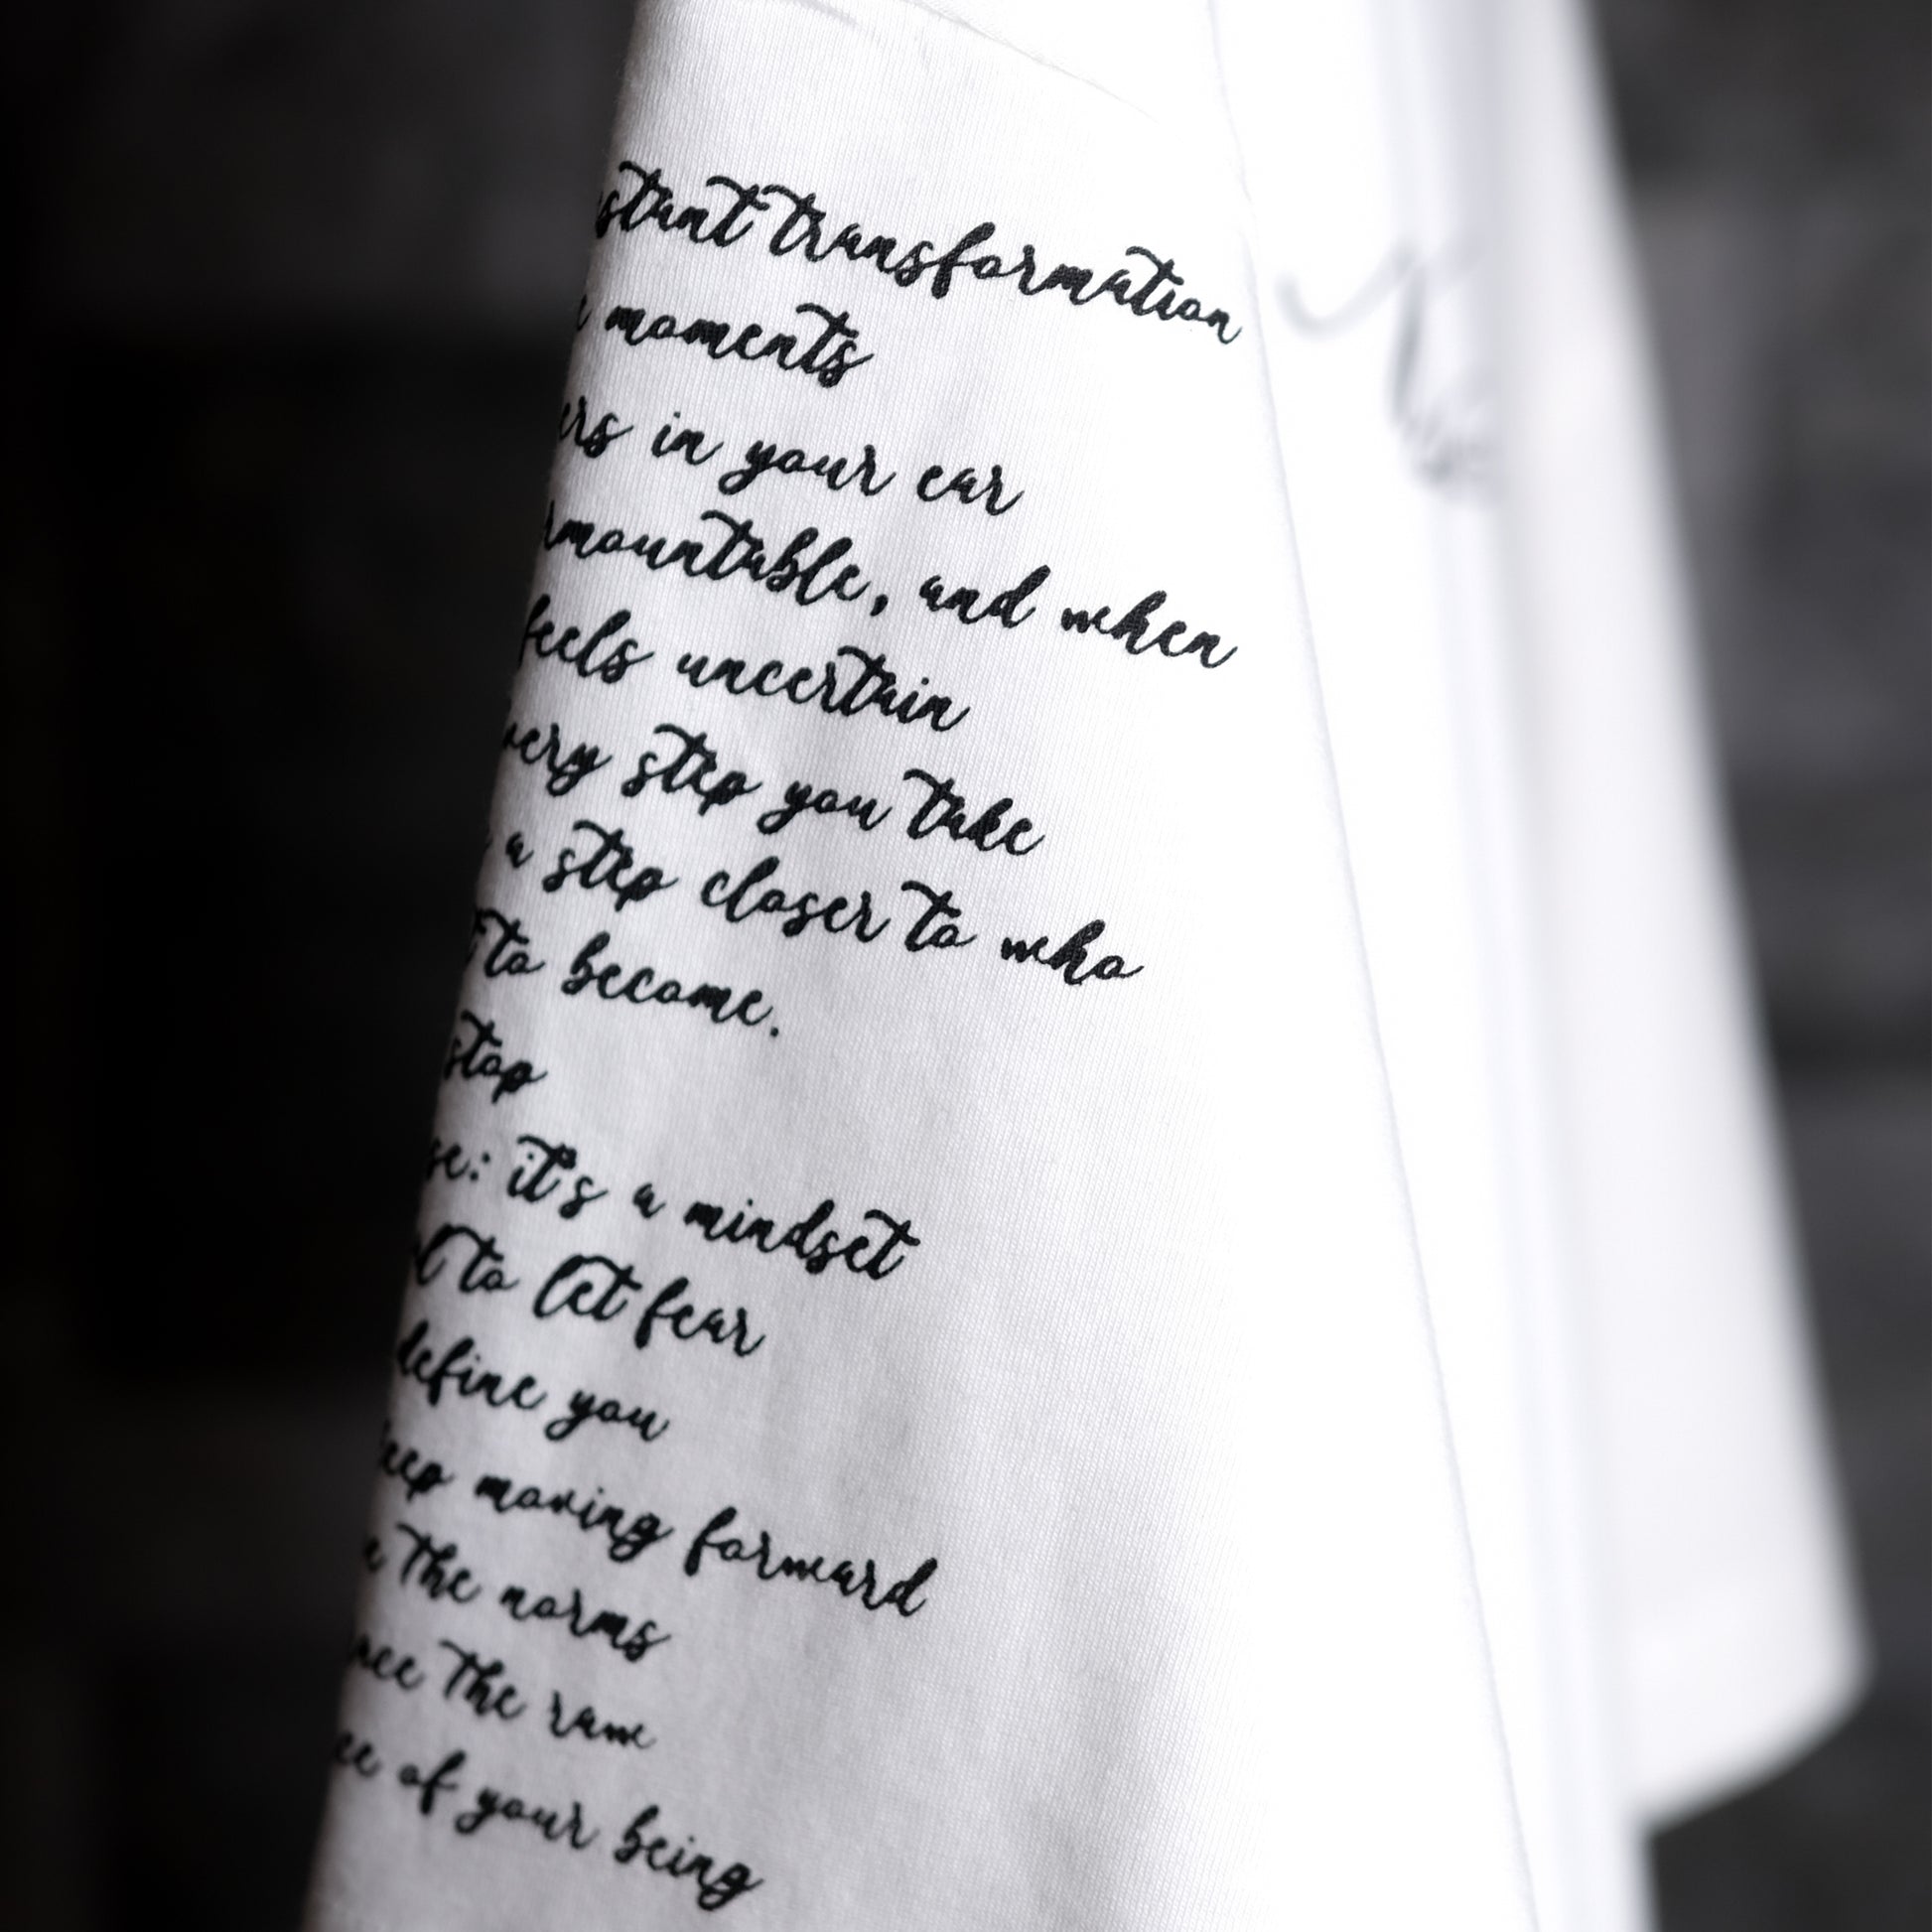 stant transformation
moments
ers in your ear
rmountable, and when
feels uncertain
very step you take
a step closer to who
t to become.
stop
se: it's a mindset
to let fear
define you
eep moving forward
the norms
the raw
of your being